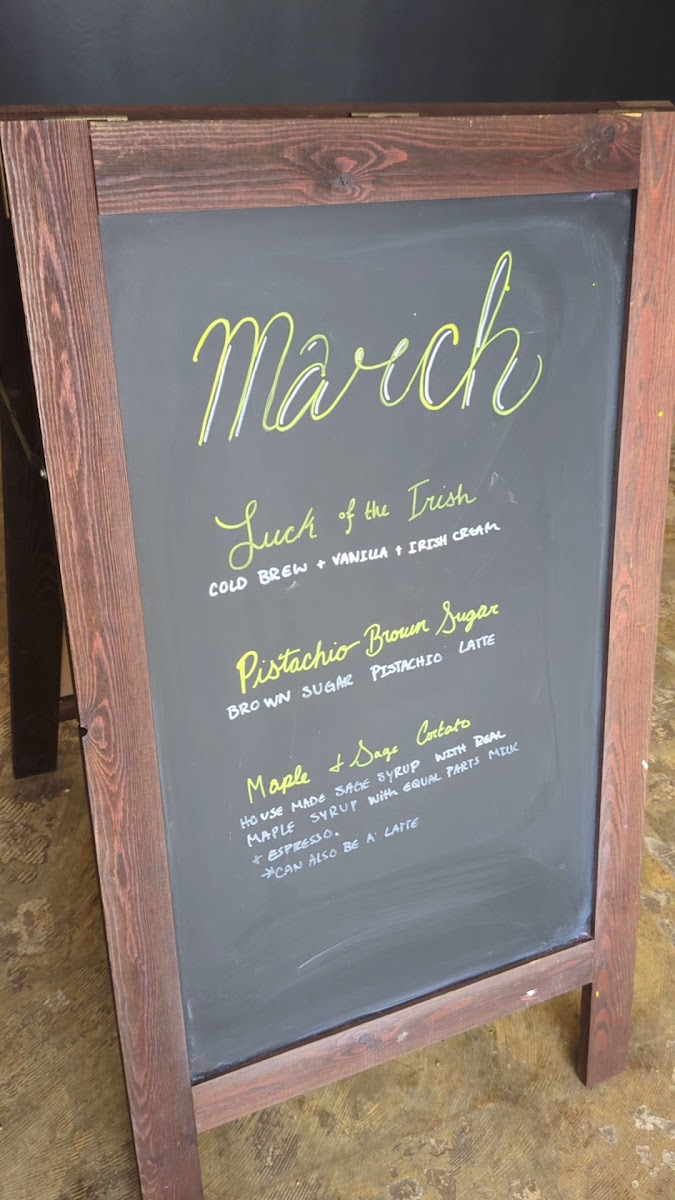 March
Luck of the Irish
COLD BREW + VANILLA + IRISH CREAM
Pistachio Brown Sugar
BROWN SUGAR PISTACHIO LATTE
Maple + Sage Cortato
HOUSE MADE SAGE SYRUP WITH REAL
MAPLE SYRUP WITH EQUAL PARTS MILK
+ ESPRESSO.
*CAN ALSO BE A LATTE